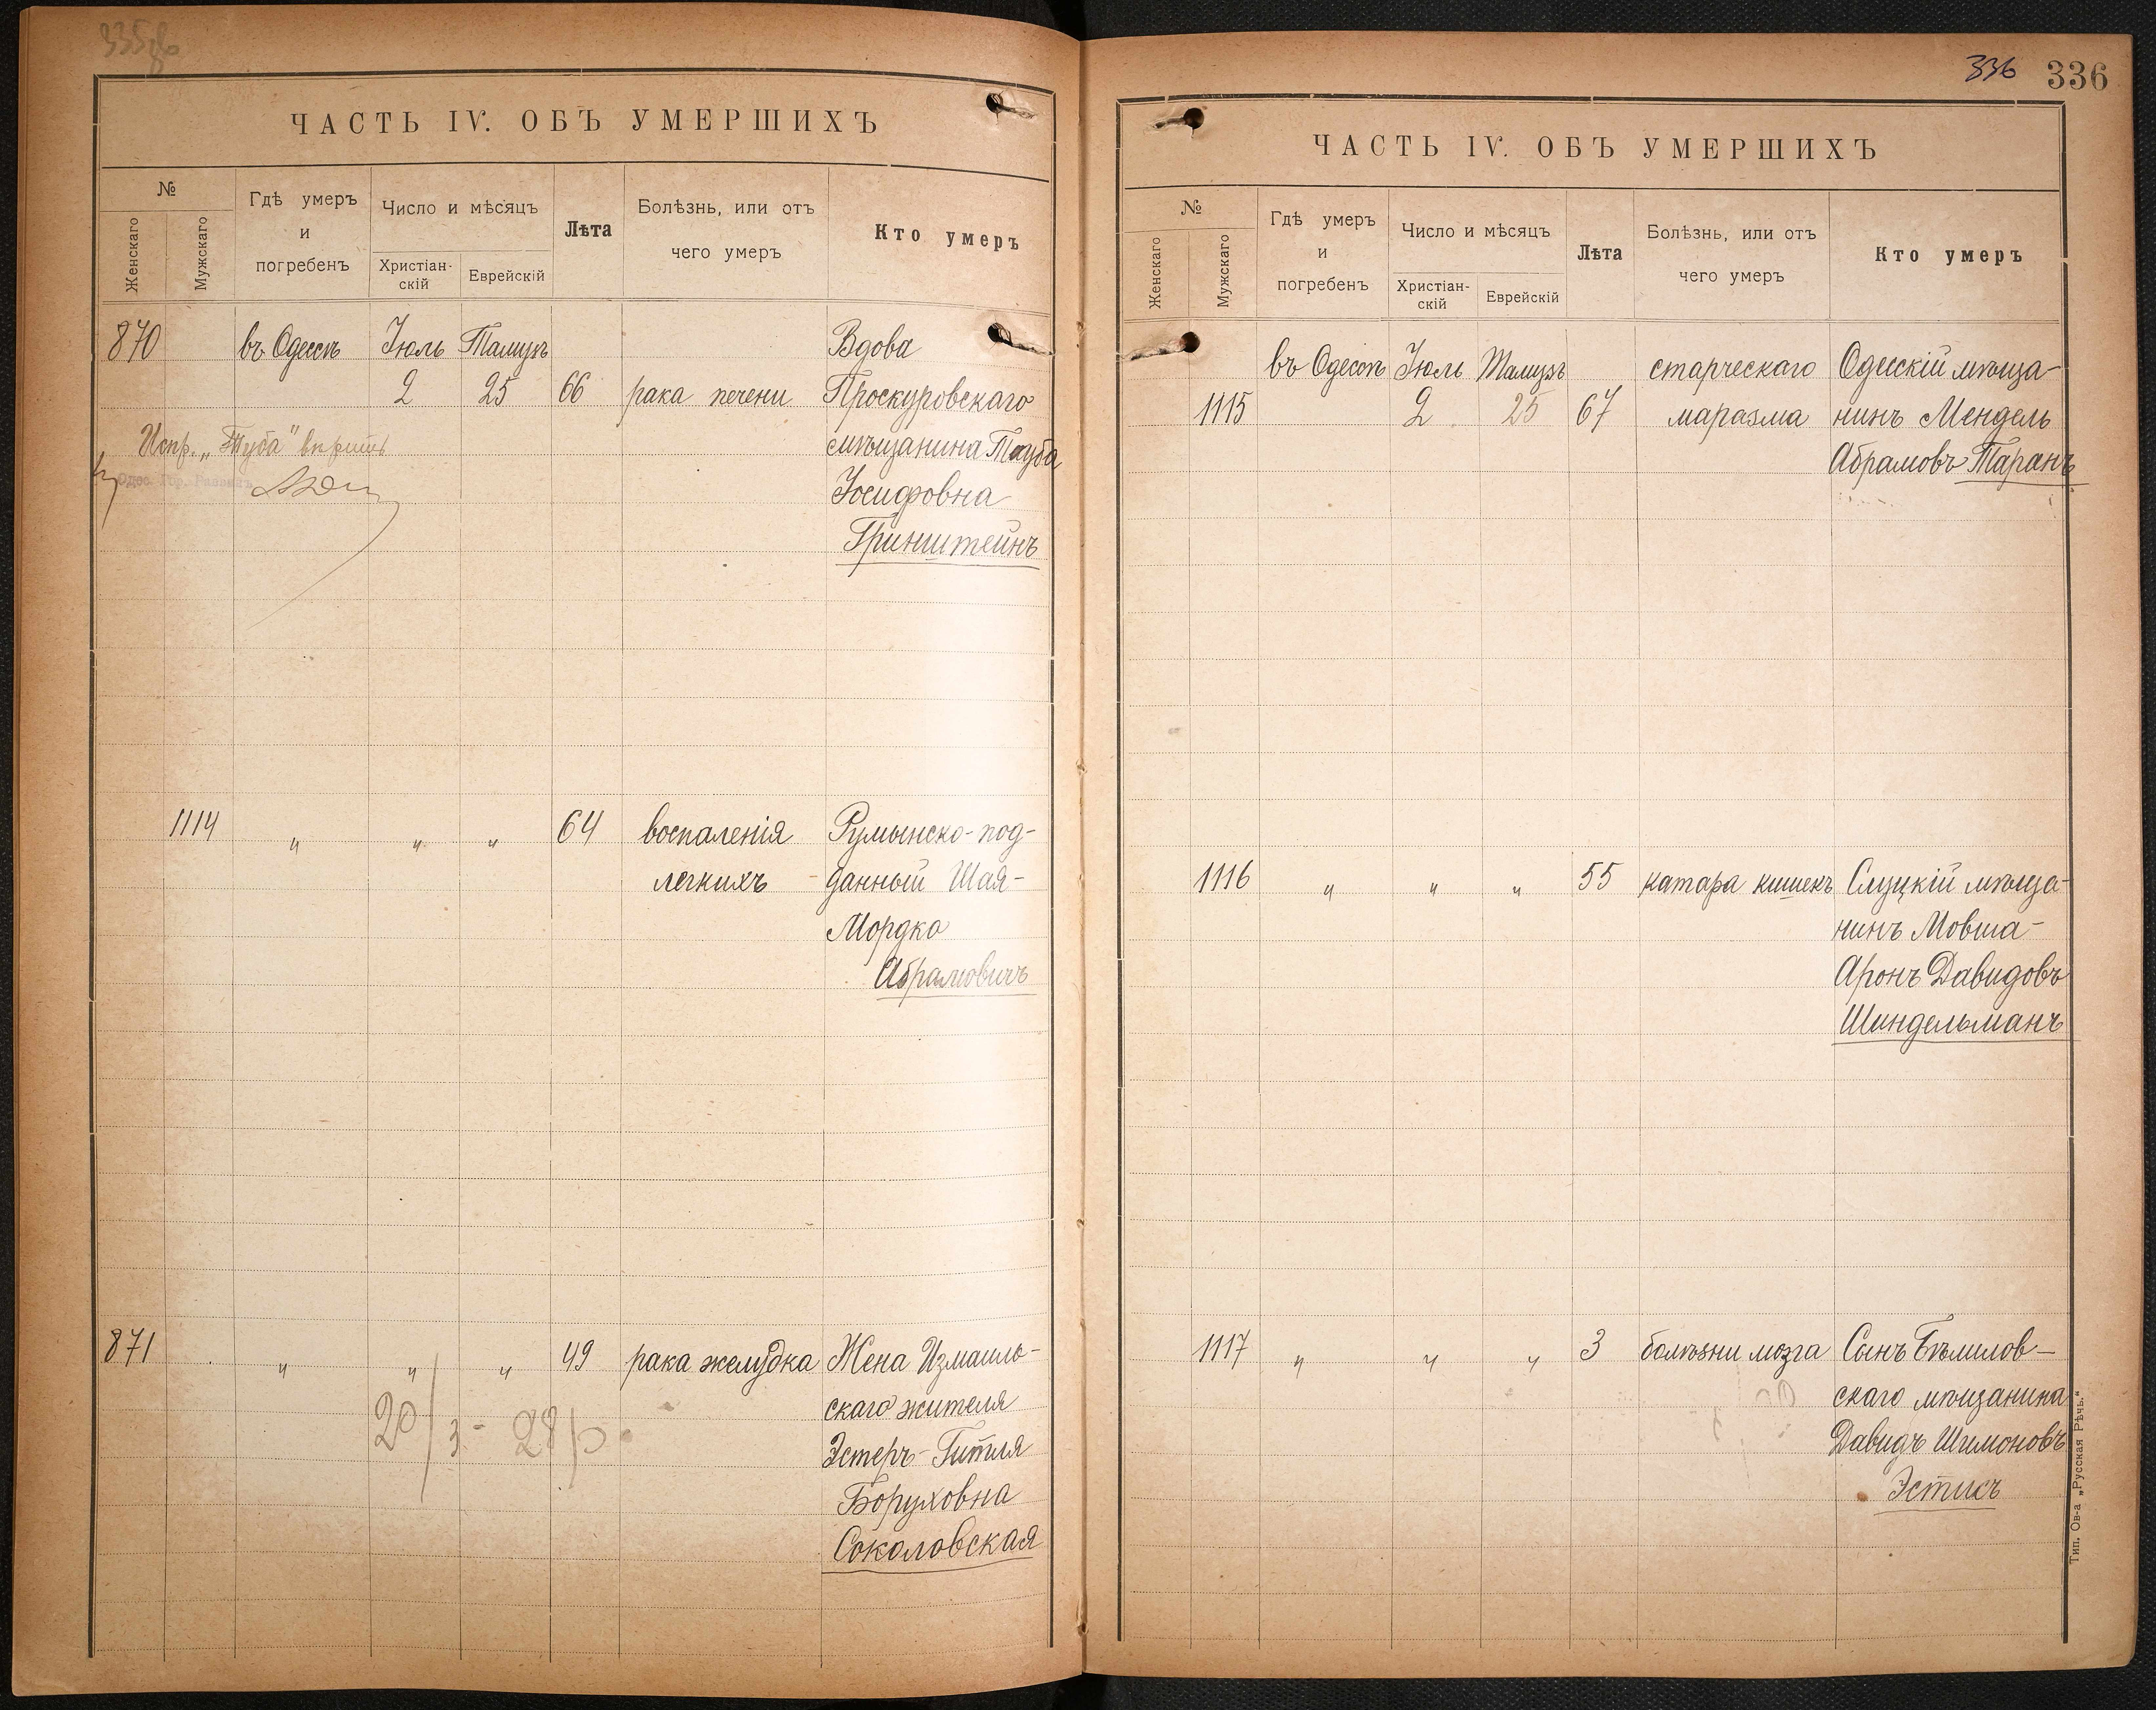 335 об
ЧАСТЬ IV. ОБЪ УМЕРШИХЪ
№
Женскаго
Мужскаго
Гдѣ умеръ
и
погребенъ
Число и мѣсяцъ
Христіан-
скій
Еврейскій
Лѣта
Болѣзнь, или отъ
чего умеръ
Кто умеръ
870 въ Одессѣ Іюль Тамузъ Вдова
2 25 66 рака печени Проскуровскаго
Испр. „Тауба" вѣрить мѣщанина Тауба
Одес. Гор. Раввинъ Іосифовна
Гринштейнъ
1114 " " " 64 воспаленія Румынско-под-
легкихъ данный Шая-
Мордко
Абрамовичъ
871 " " " 49 рака желудка Жена Измаиль-
скаго жителя
20/3 - 28/ Эстеръ-Гитля
Боруховна
Соколовская
336 336
ЧАСТЬ IV. ОБЪ УМЕРШИХЪ
№
Женскаго
Мужскаго
Гдѣ умеръ
и
погребенъ
Число и мѣсяцъ
Христіан-
скій
Еврейскій
Лѣта
Болѣзнь, или отъ
чего умеръ
Кто умеръ
въ Одессѣ Іюль Тамузъ старческаго Одесскій мѣща-
1115 2 25 67 маразма нинъ Мендель
Абрамовъ Таранъ
1116 " " " 55 катара кишекъ Слуцкій мѣща-
нинъ Мовша-
Аронъ Давидовъ
Шиндельманъ
1117 " " " 3 болѣзни мозга Сынъ Бѣмилов-
скаго мѣщанина
Давидъ Шимоновъ
Эстисъ
Тип. Ов-а „Русская Рѣчь."